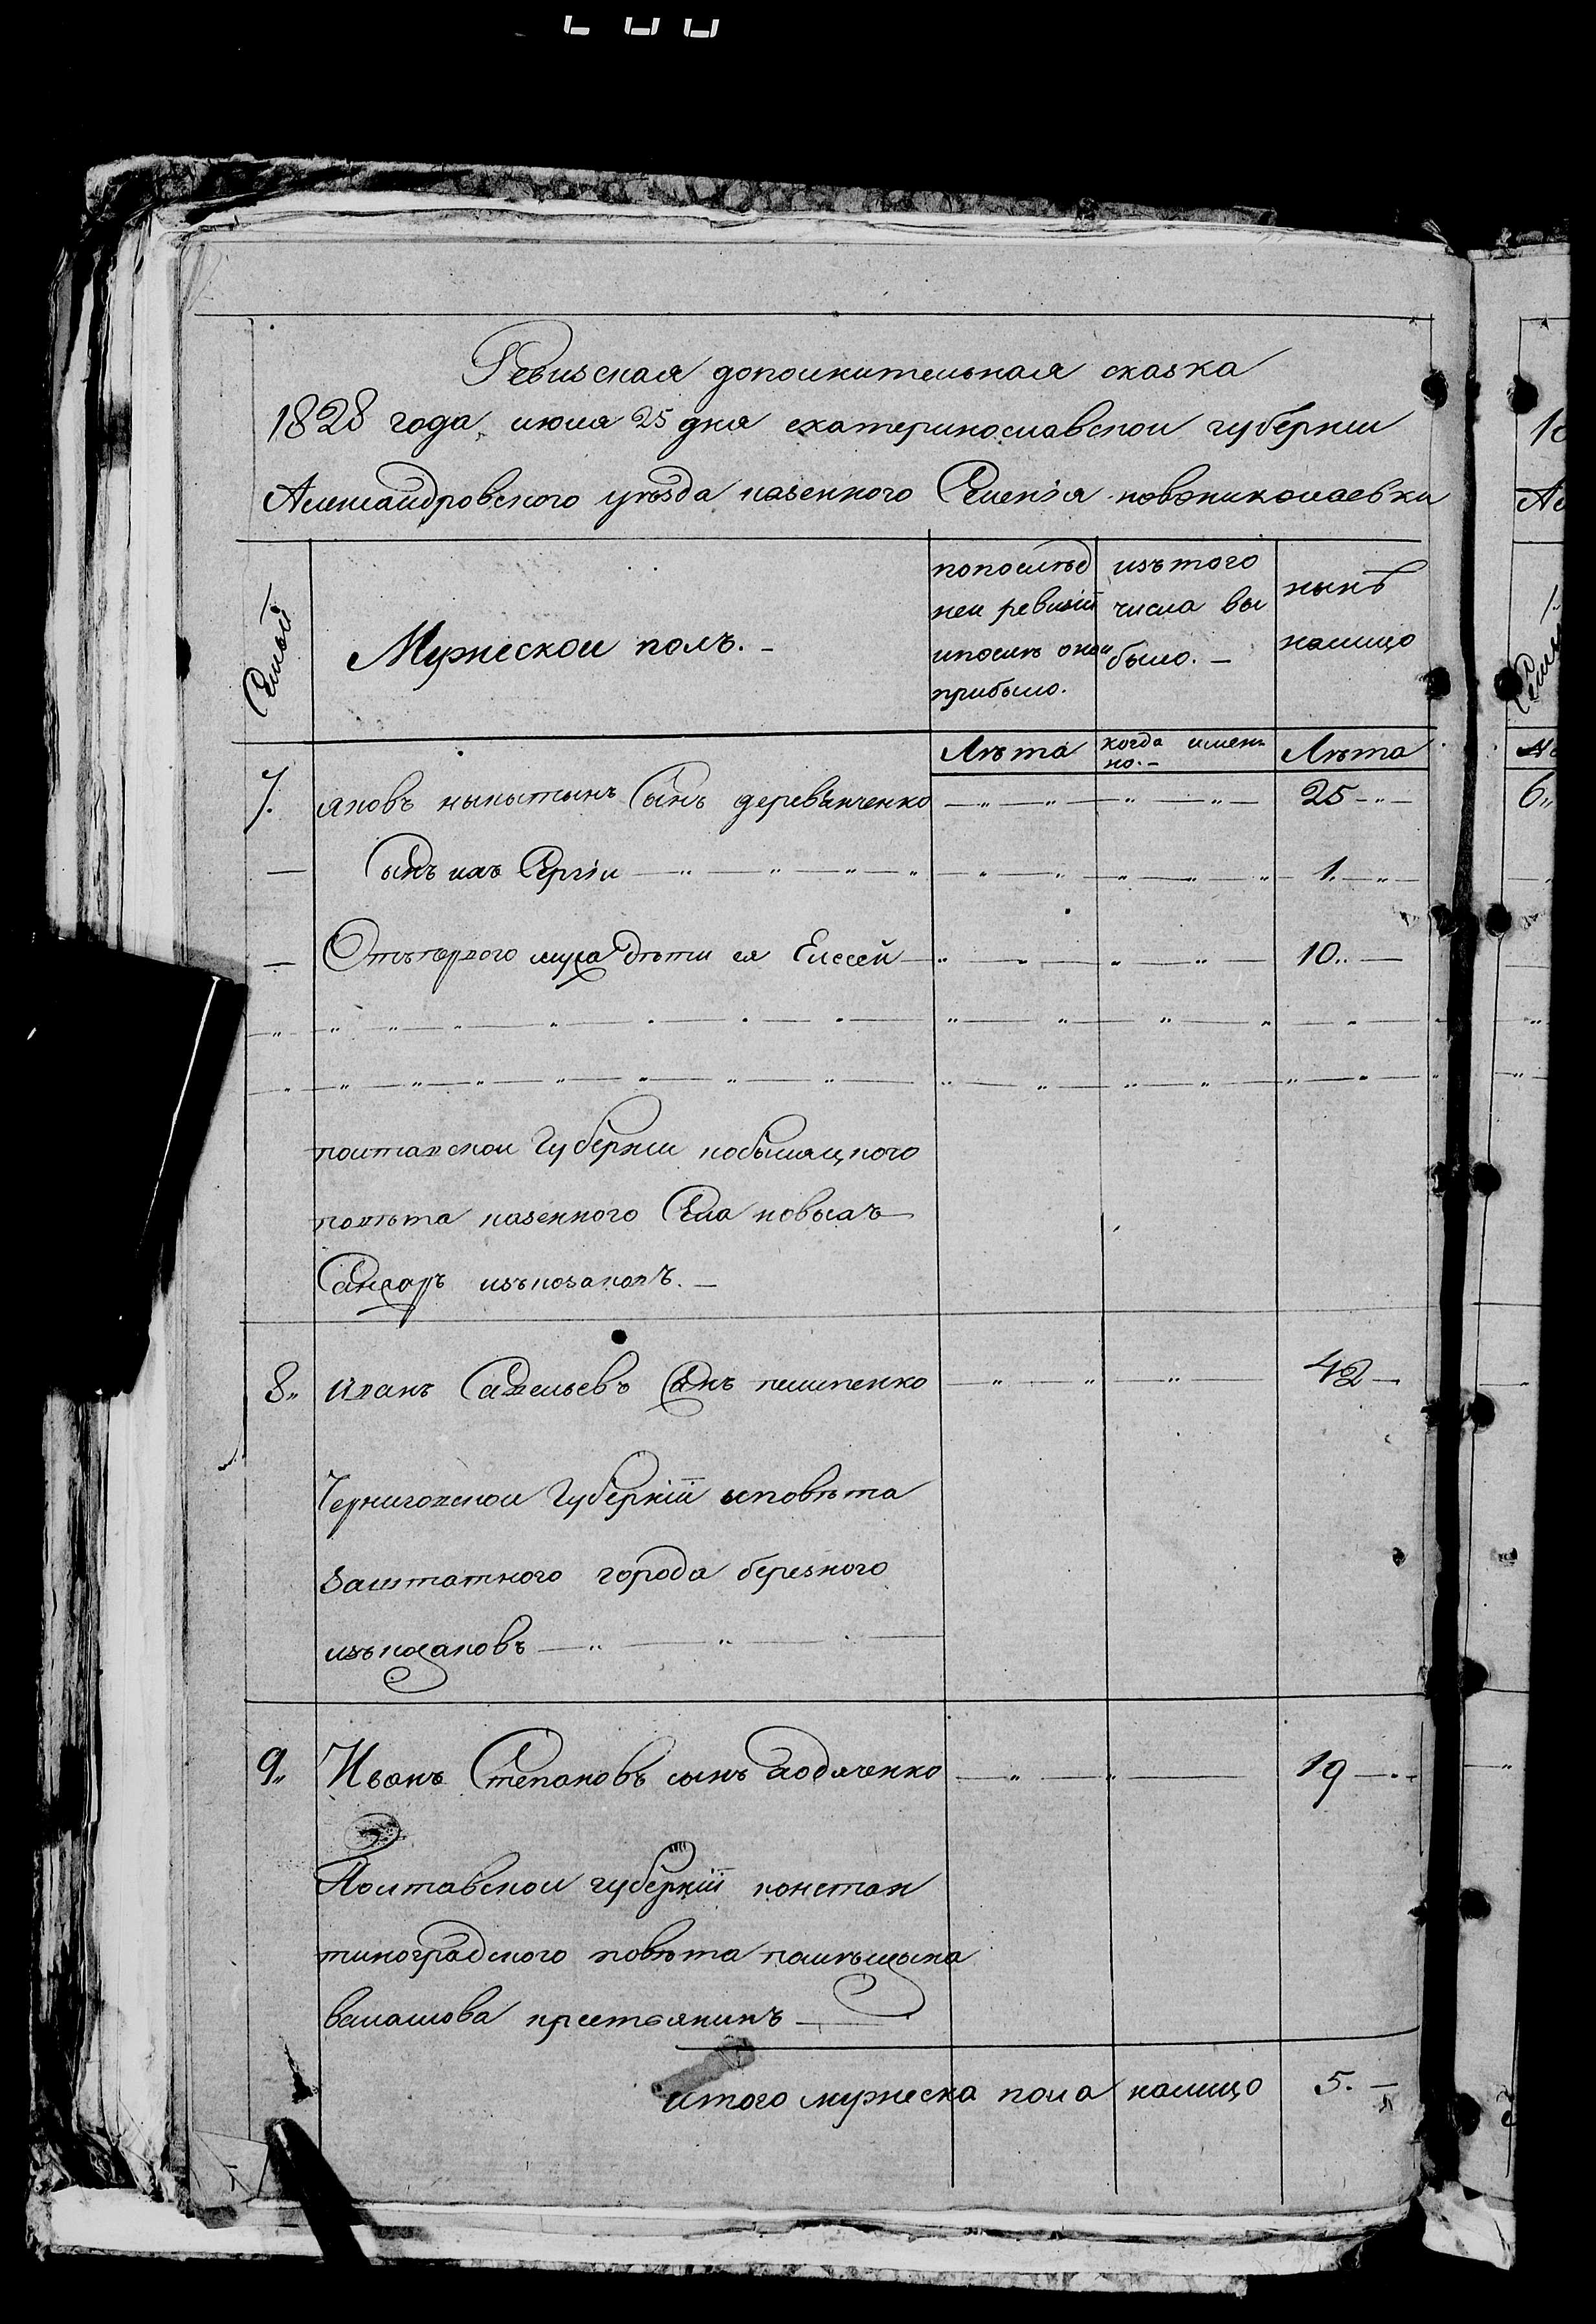 Ревизская дополнительная сказка
1828 года июля 25 дня екатеринославской губернии
Александровского уѣзда казенного Селенія новониколаевки
Семьи
Мужеской полъ. –
попослѣд
ней ревизіи
ипослѣ оной
прибыло.
изътого
числа вы
было. –
нынѣ
налицо
Лѣта
когда имен
но. –
Лѣта
7. яковъ никытынъ Сынъ деревянченко 25
Сынъ ихъ Сергіи 1.
Отъпервого мужа дѣти ея Елесей 10
полтавской Губернии кобыляцкого
повѣта казенного Села новыхъ
Санжаръ изъкозаковъ. –
8. иванъ Савельевъ Сынъ пилипенко 42
Черниговской Губерніи иповѣта
Заштатного города березного
изъкозаковъ
9. Иванъ Степановъ сынъ 19
Полтавской губерніи констан
тиноградского повѣта помѣщыка
крестьянинъ
итого мужеска пола налицо 5.